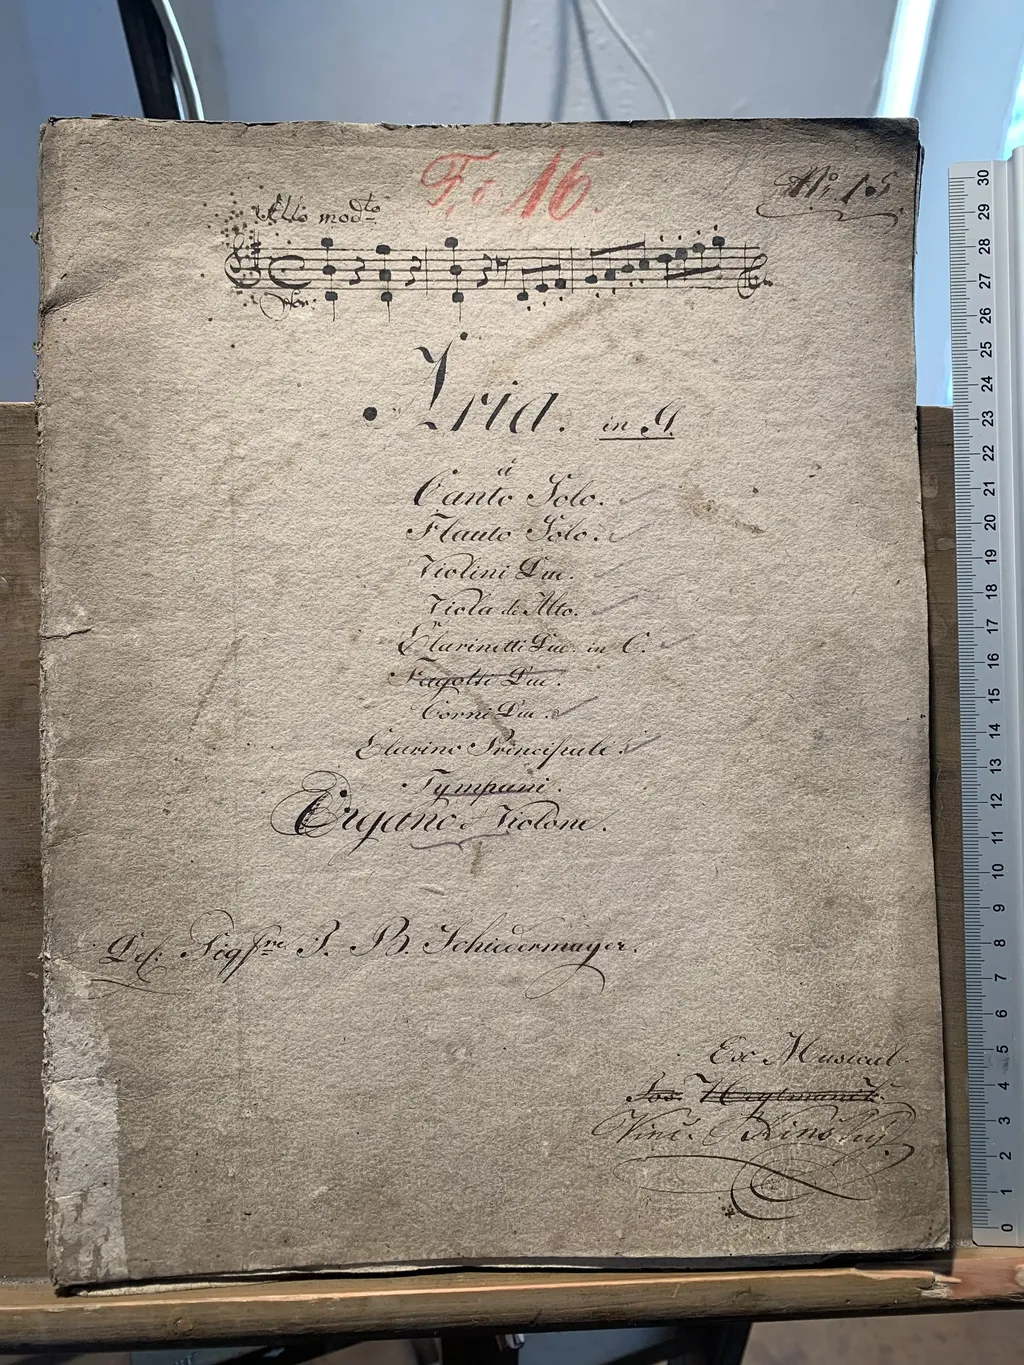 F. 16.
No. 15
Allo modto
Aria. in G.
á
Canto Solo.
Flauto Solo.
Violini Due.
Viola de Alto.
Clarinetti Due. in C.
Fagotti Due.
Corni Due.
Clarino Principale.
Tympani.
Organo e Violone.
Del: Sigfre J. B. Schiedermayer.
Ex Musical.
Jos.
Vinc.
30
29
28
27
26
25
24
23
22
21
20
19
18
17
16
15
14
13
12
11
10
9
8
7
6
5
4
3
2
1
0